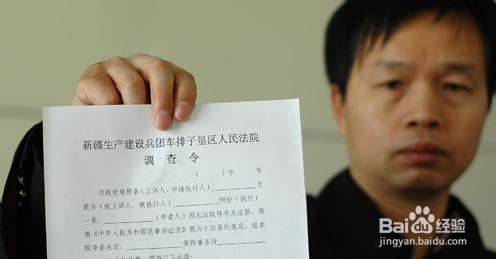 新疆生产建设兵团车排子垦区人民法院
调 查 令
（ ）字 号
我院受理原告（上诉人、申请执行人）__________与
被告（被上诉人、被执行人）__________纠纷（执行）
一案，__________（申请人）因无法取得有关证据，根
据《中华人民共和国民事诉讼法》第六十四条的规定，经本
院审查决定，__________律师事务所__________
Baidu 经验
jingyan.baidu.com